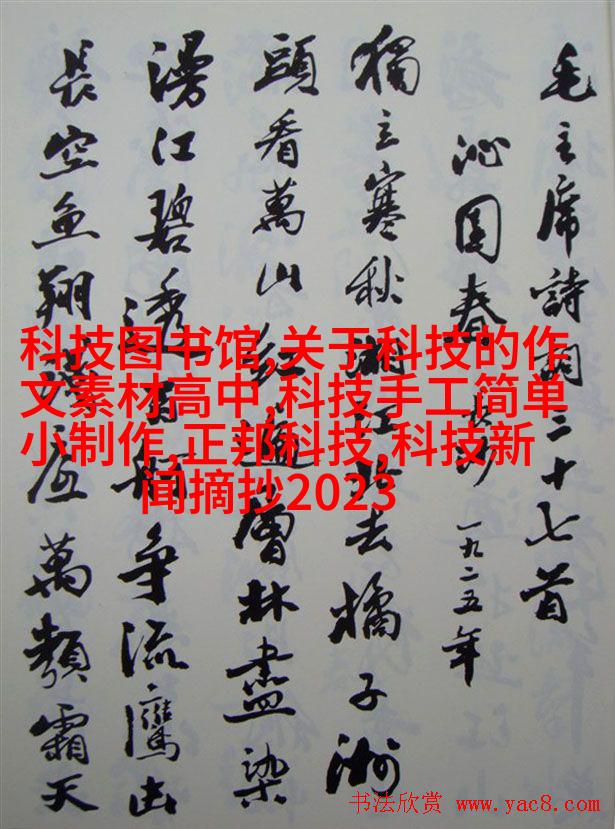 毛主席詩詞三十七首
沁園春 长沙 一九二五年
獨立寒秋湘江北去橘子洲
頭看萬山红遍層林盡染
漫江碧透百舸争流鷹击
長空鱼翔淺底萬類霜天
科技图书馆,关于科技的作
文素材高中,科技手工简单
小制作,正邦科技,科技新
闻摘抄2023
书法欣赏 www.yac8.com